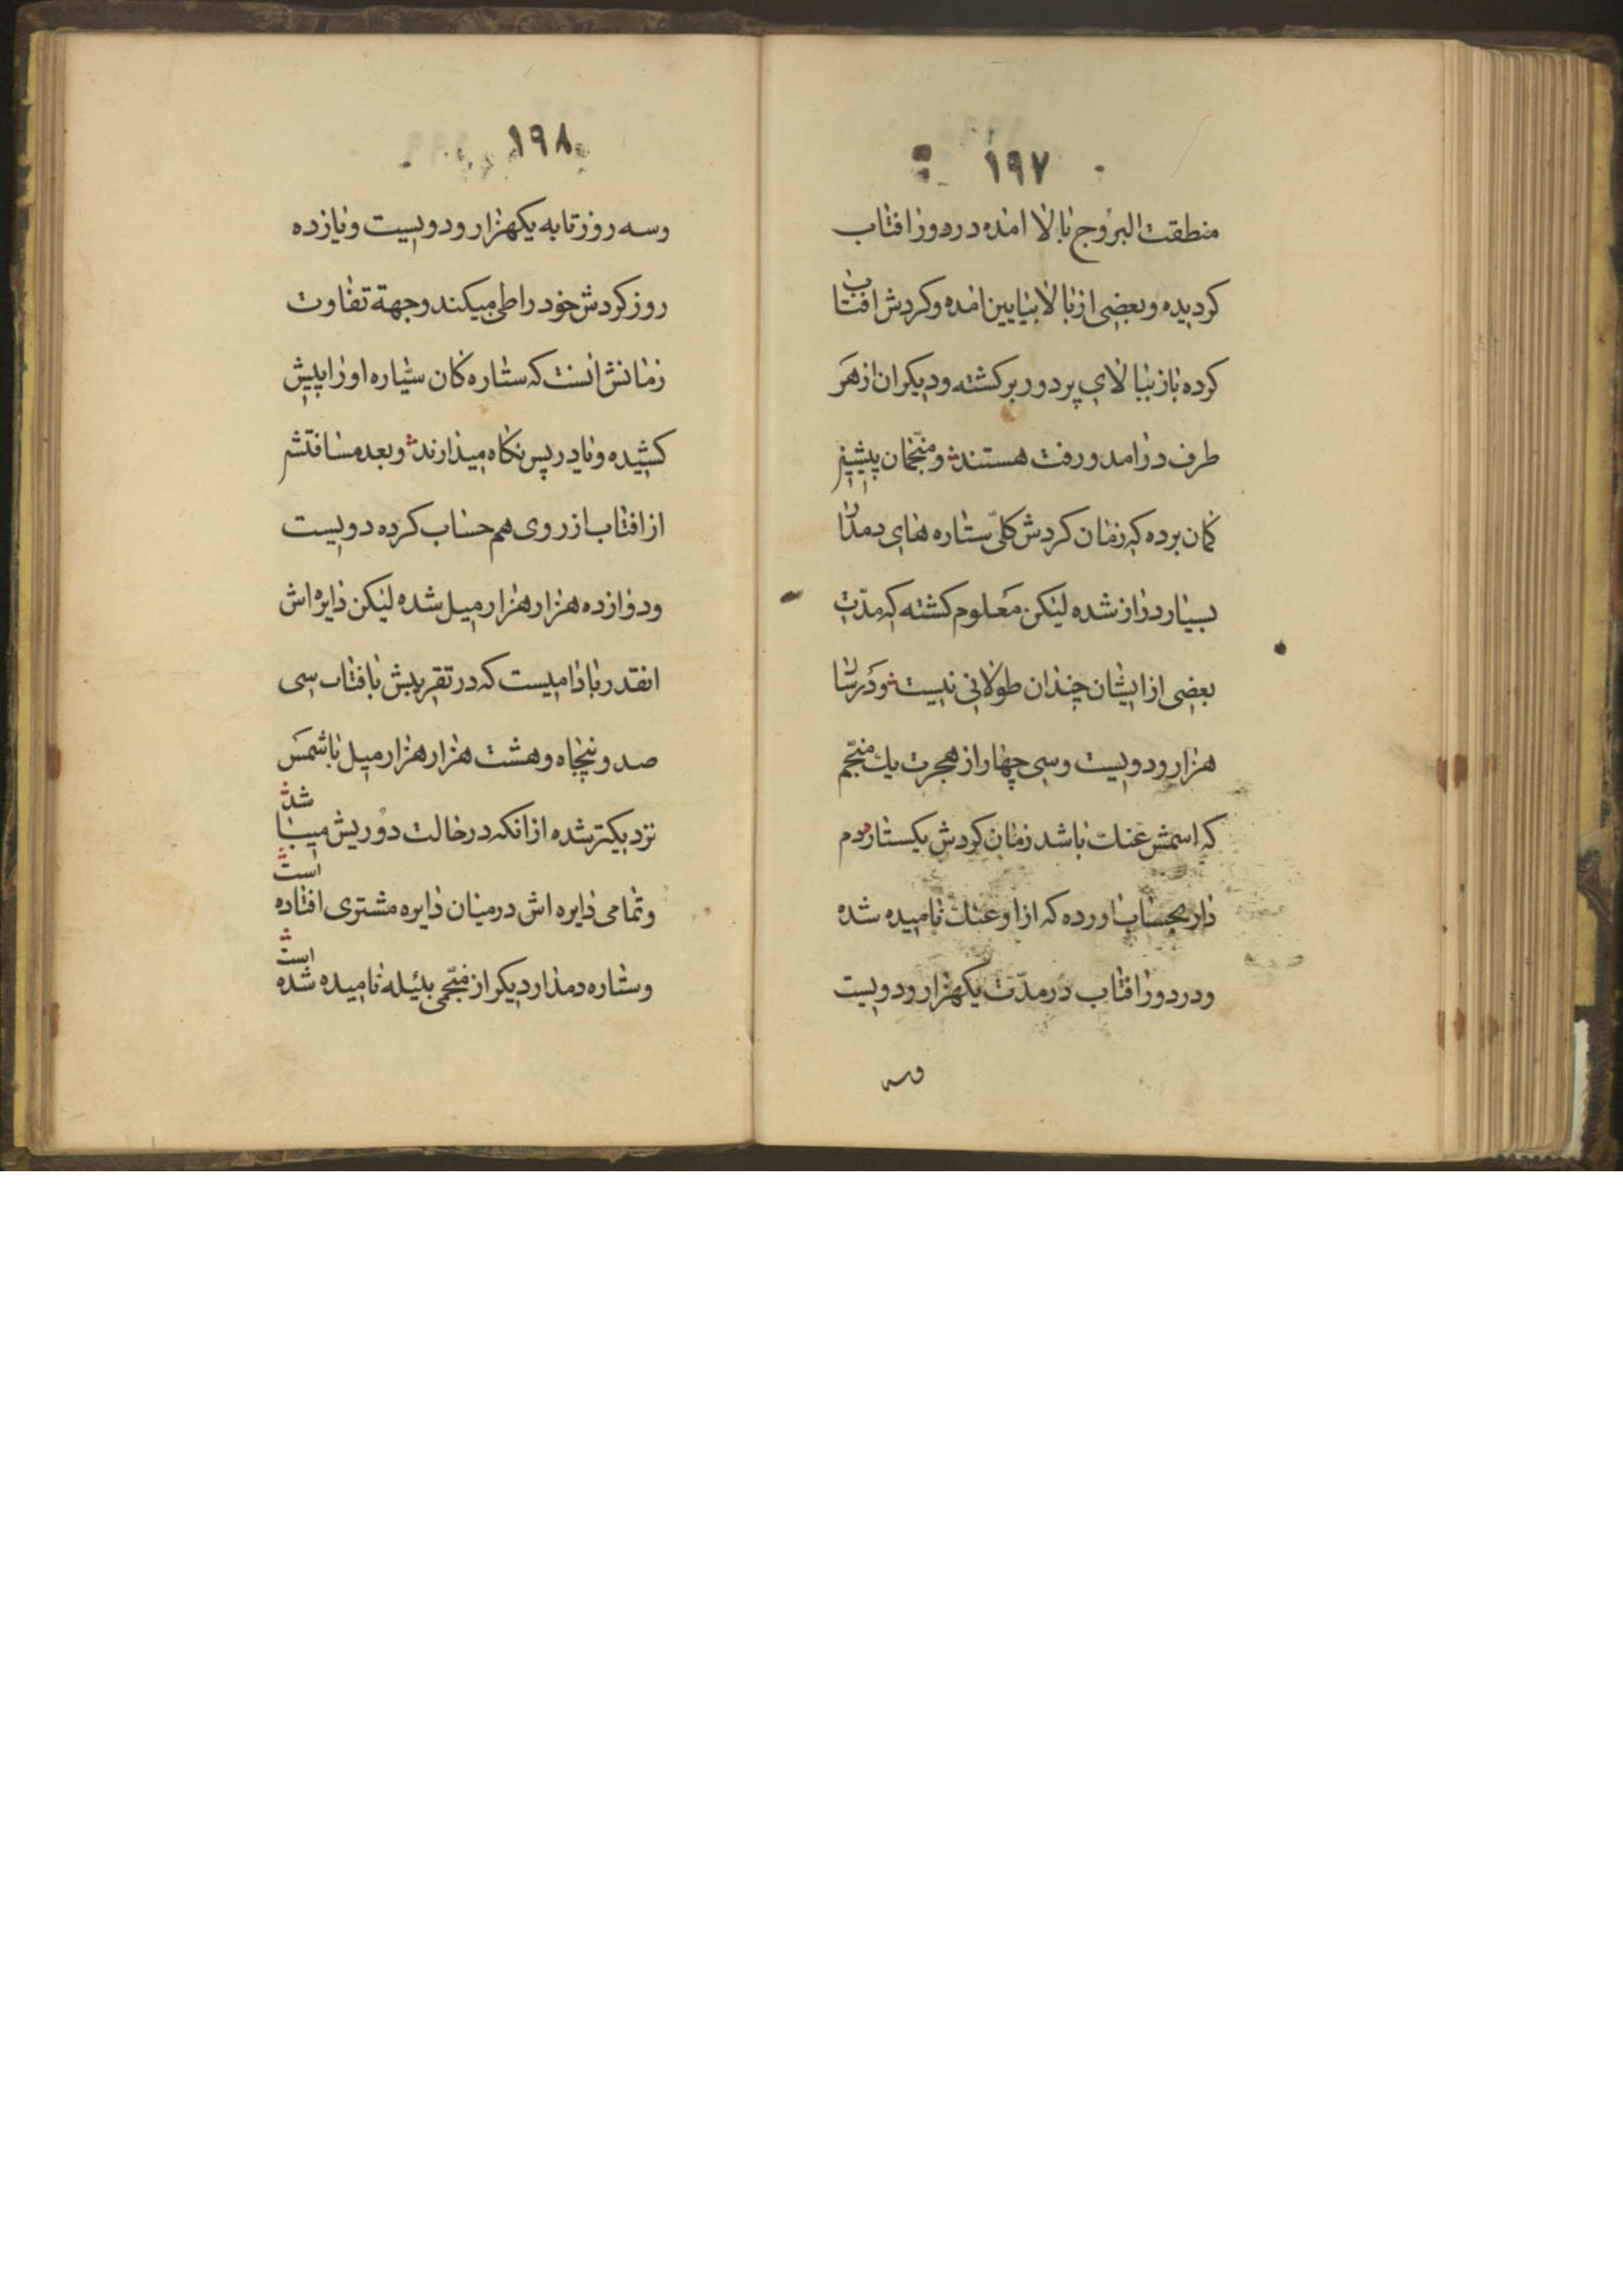 ۱۹۷
منطقت البروج ببالا امده در دور افتاب
کردیده و بعضی از بالا بپایین امده و کردش افتاب
کرده باز ببالای پر دور برکشته و دیکران از هر
طرف در امد و رفت هستند و منجّمان پیشین
کمان برده که زمان کردش کلّی ستاره های دمدار
بسیار دراز شده لیکن معلوم کشته که مدّت
بعضی از ایشان چندان طولانی نیست و در سال
هزار و دویست و سی چهار از هجرت یک منجّم
که اسمش عنک باشد زمان کردش یکستاره دم
دار بحساب اورده که از او عنک نامیده شده
و در دور افتاب در مدّت یکهزار و دویست
وسه
۱۹۸
وسه روز تا به یکهزار و دویست و یازده
روز کردش خود را طی میکند وجهة تفاوت
زمانش انست که ستاره کان سیّاره او را پیش
کشیده و یا در پس نکاه میدارند و بعد مسافتش
از افتاب از روی هم حساب کرده دویست
و دوازده هزار هزار میل شده لیکن دایره اش
انقدر بادامیست که در تقریبش بافتاب سی
صد و پنجاه و هشت هزار هزار میل با شمس
نزدیکتر شده از انکه در حالت دوریش میباشد
و تمامی دایره اش در میان دایره مشتری افتاده است
و ستاره دمدار دیکر از منجّمی بئیله نامیده شده است